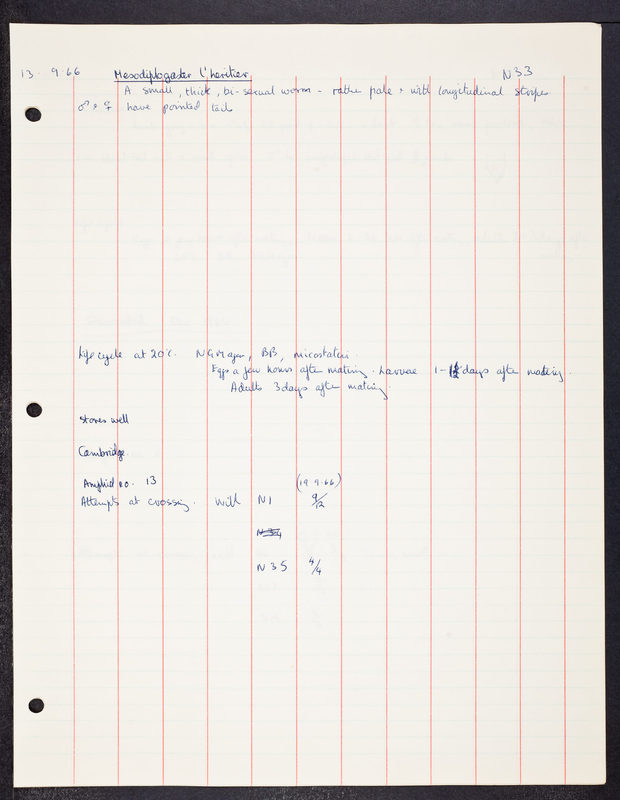 13. 9.66 Mesodiplogaster l'heritier. N33
A small, thick, bi-sexual worm - rather pale + with longitudinal stripes
♂ + ♀ have pointed tails
Life cycle at 20°C. NGM agar, BB, microstateri
Eggs a few hours after mating. Larvae 1- days after mating.
Adults 3 days after mating.
Stores well
Cambridge.
Amphid no. 13 (19.9.66)
Attempts at crossing. with N1 9/12
N34
N35 4/4